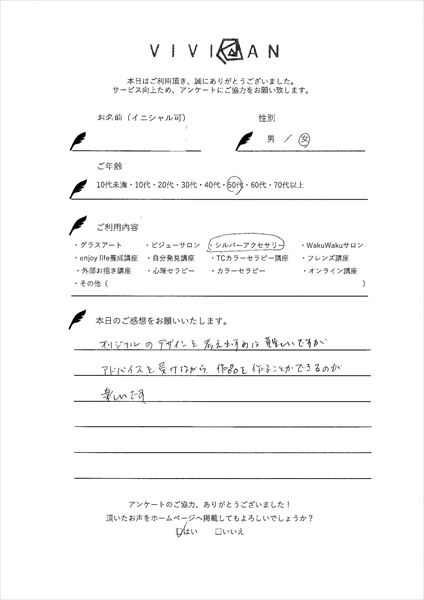 VIVIAN
本日はご利用頂き、誠にありがとうございました。
サービス向上ため、アンケートにご協力をお願い致します。
お名前（イニシャル可） 性別
男 ／ 女
ご年齢
10代未満・10代・20代・30代・40代・50代・60代・70代以上
ご利用内容
・グラスアート ・ビジューサロン ・シルバーアクセサリー ・WakuWakuサロン
・enjoy life養成講座 ・自分発見講座 ・TCカラーセラピー講座 ・フレンズ講座
・外部お招き講座 ・心理セラピー ・カラーセラピー ・オンライン講座
・その他（ ）
本日のご感想をお願いいたします。
オリジナルのデザインを考えるのは難しいですが
アドバイスを受けながら、作品を作ることができるのが
楽しいです
アンケートのご協力、ありがとうございました！
頂いたお声をホームページへ掲載してもよろしいでしょうか？
☑はい □いいえ